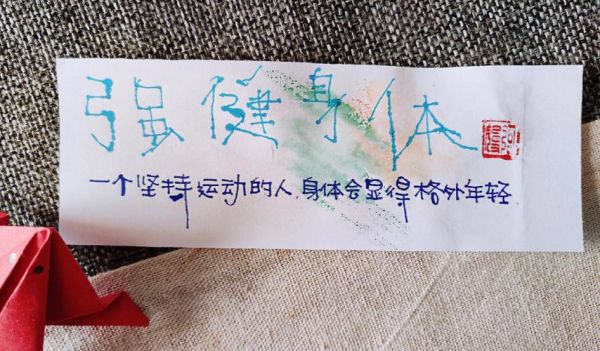 强健身体
一个坚持运动的人,身体会显得格外年轻